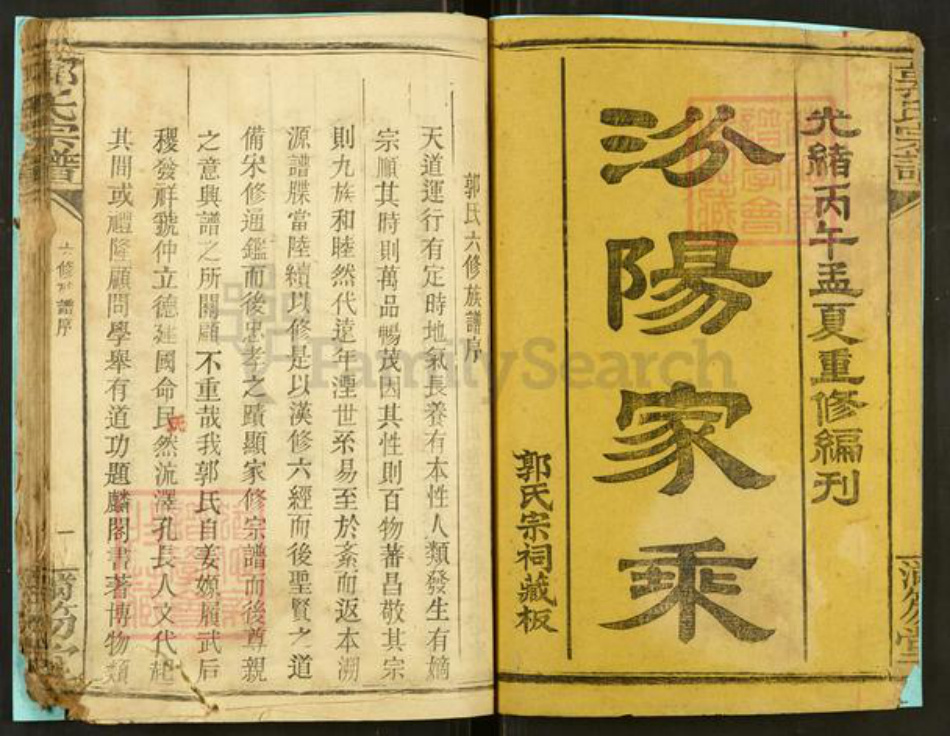 光緒丙午孟夏重修編刊
汾陽家乘
郭氏宗祠藏板
郭氏六修族譜序
天道運行有定時地氣長養有本性人類發生有嫡
宗順其時則萬品暢茂因其性則百物蕃昌敬其宗
則九族和睦然代遠年湮世系易至於紊而返本溯
源譜牒當陸續以修是以漢修六經而後聖賢之道
備宋修通鑑而後忠孝之蹟顯家修宗譜而後尊親
之意興譜之所關顧不重哉我郭氏自姜嫄履武后
稷發祥虢仲立德建國命民然流澤孔長人文代起
氏
其間或禮隆顧問學舉有道功題麟閣書著博物類
郭氏宗譜
六修 譜序
一
FamilySearch